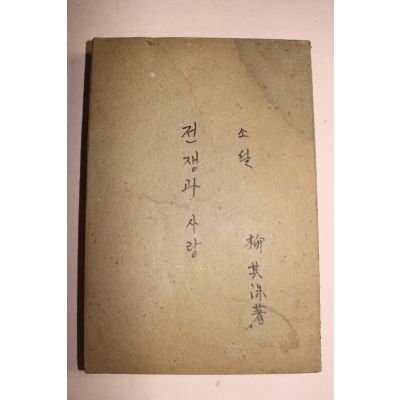 소설
전쟁과 사랑
柳其洙著